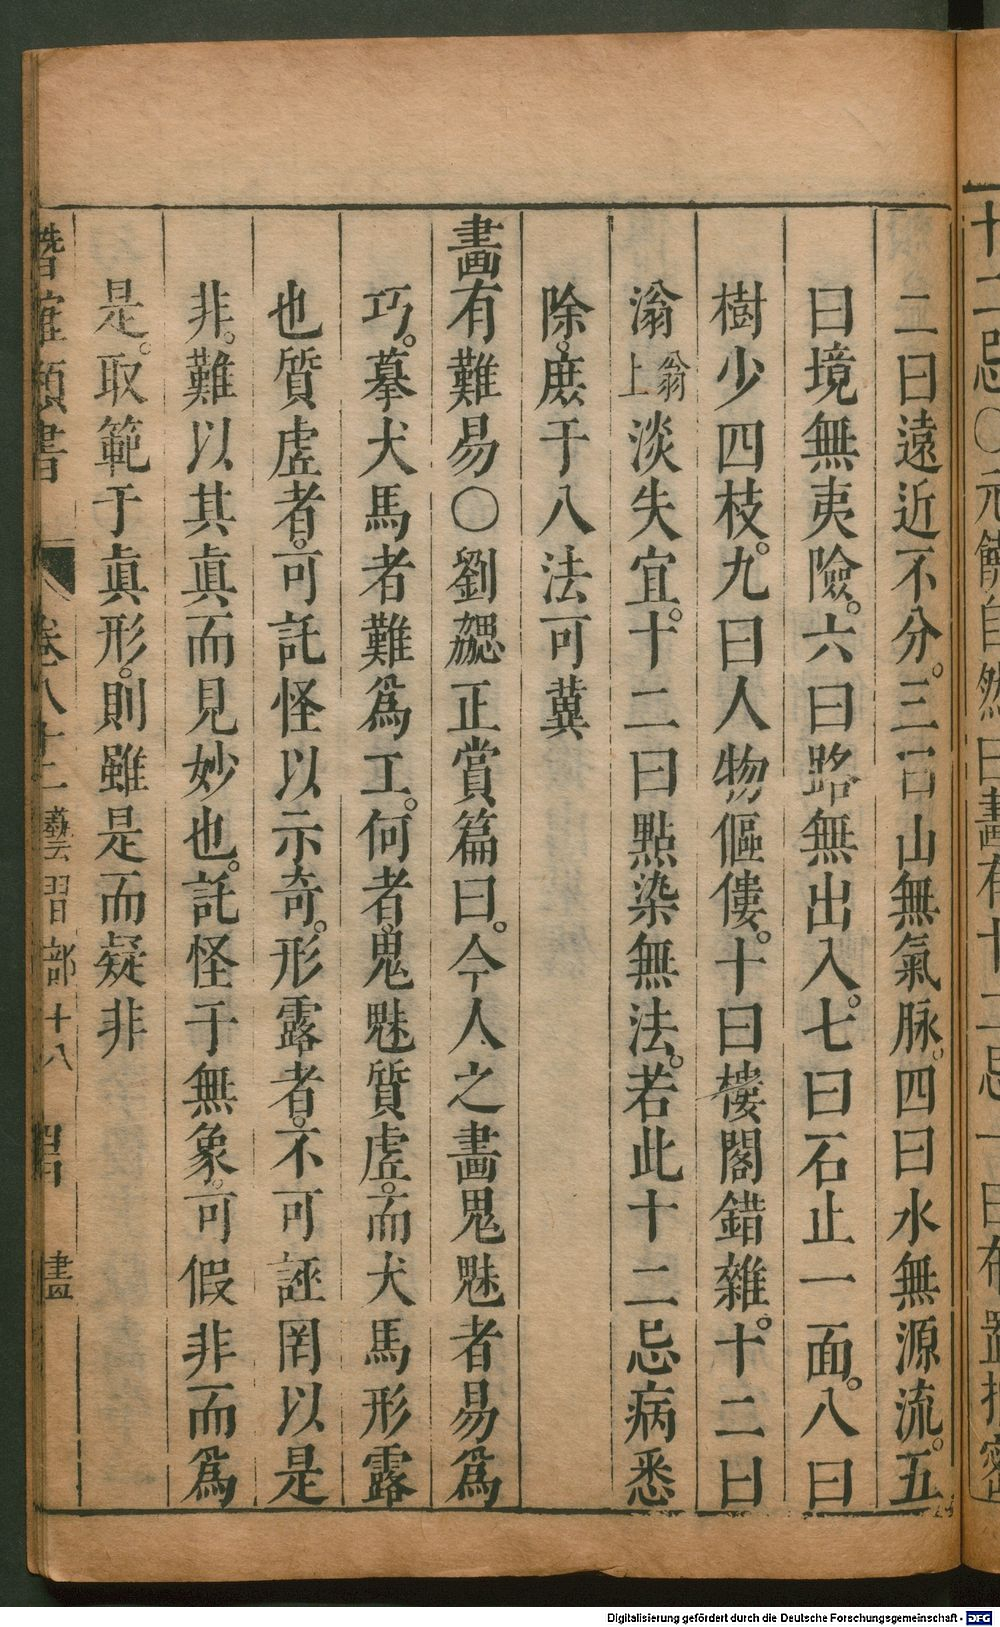 十二忌〇元饒自然曰畫有十二忌一曰布置拍密
二曰遠近不分。三曰山無氣脉。四曰水無源流。五
曰境無夷險。六曰路無出入。七曰石止一面。八曰
樹少四枝。九曰人物傴僂。十曰樓閣錯雜。十二曰
滃翁上淡失宜。十二曰點染無法。若此十二忌病悉
除。庶于八法可冀
畫有難易〇劉勰正賞篇曰。今人之畫鬼魅者易爲
巧。摹犬馬者難爲工。何者。鬼魅質虛。而犬馬形露
也質虛者。可託怪以示奇。形露者。不可誣罔以是
非。難以其眞而見妙也。託怪于無象。可假非而爲
是。取範于眞形。則雖是而疑非
潛確類書 卷八十二 藝習部十八 畫
Digitalisierung gefördert durch die Deutsche Forschungsgemeinschaft - DFG